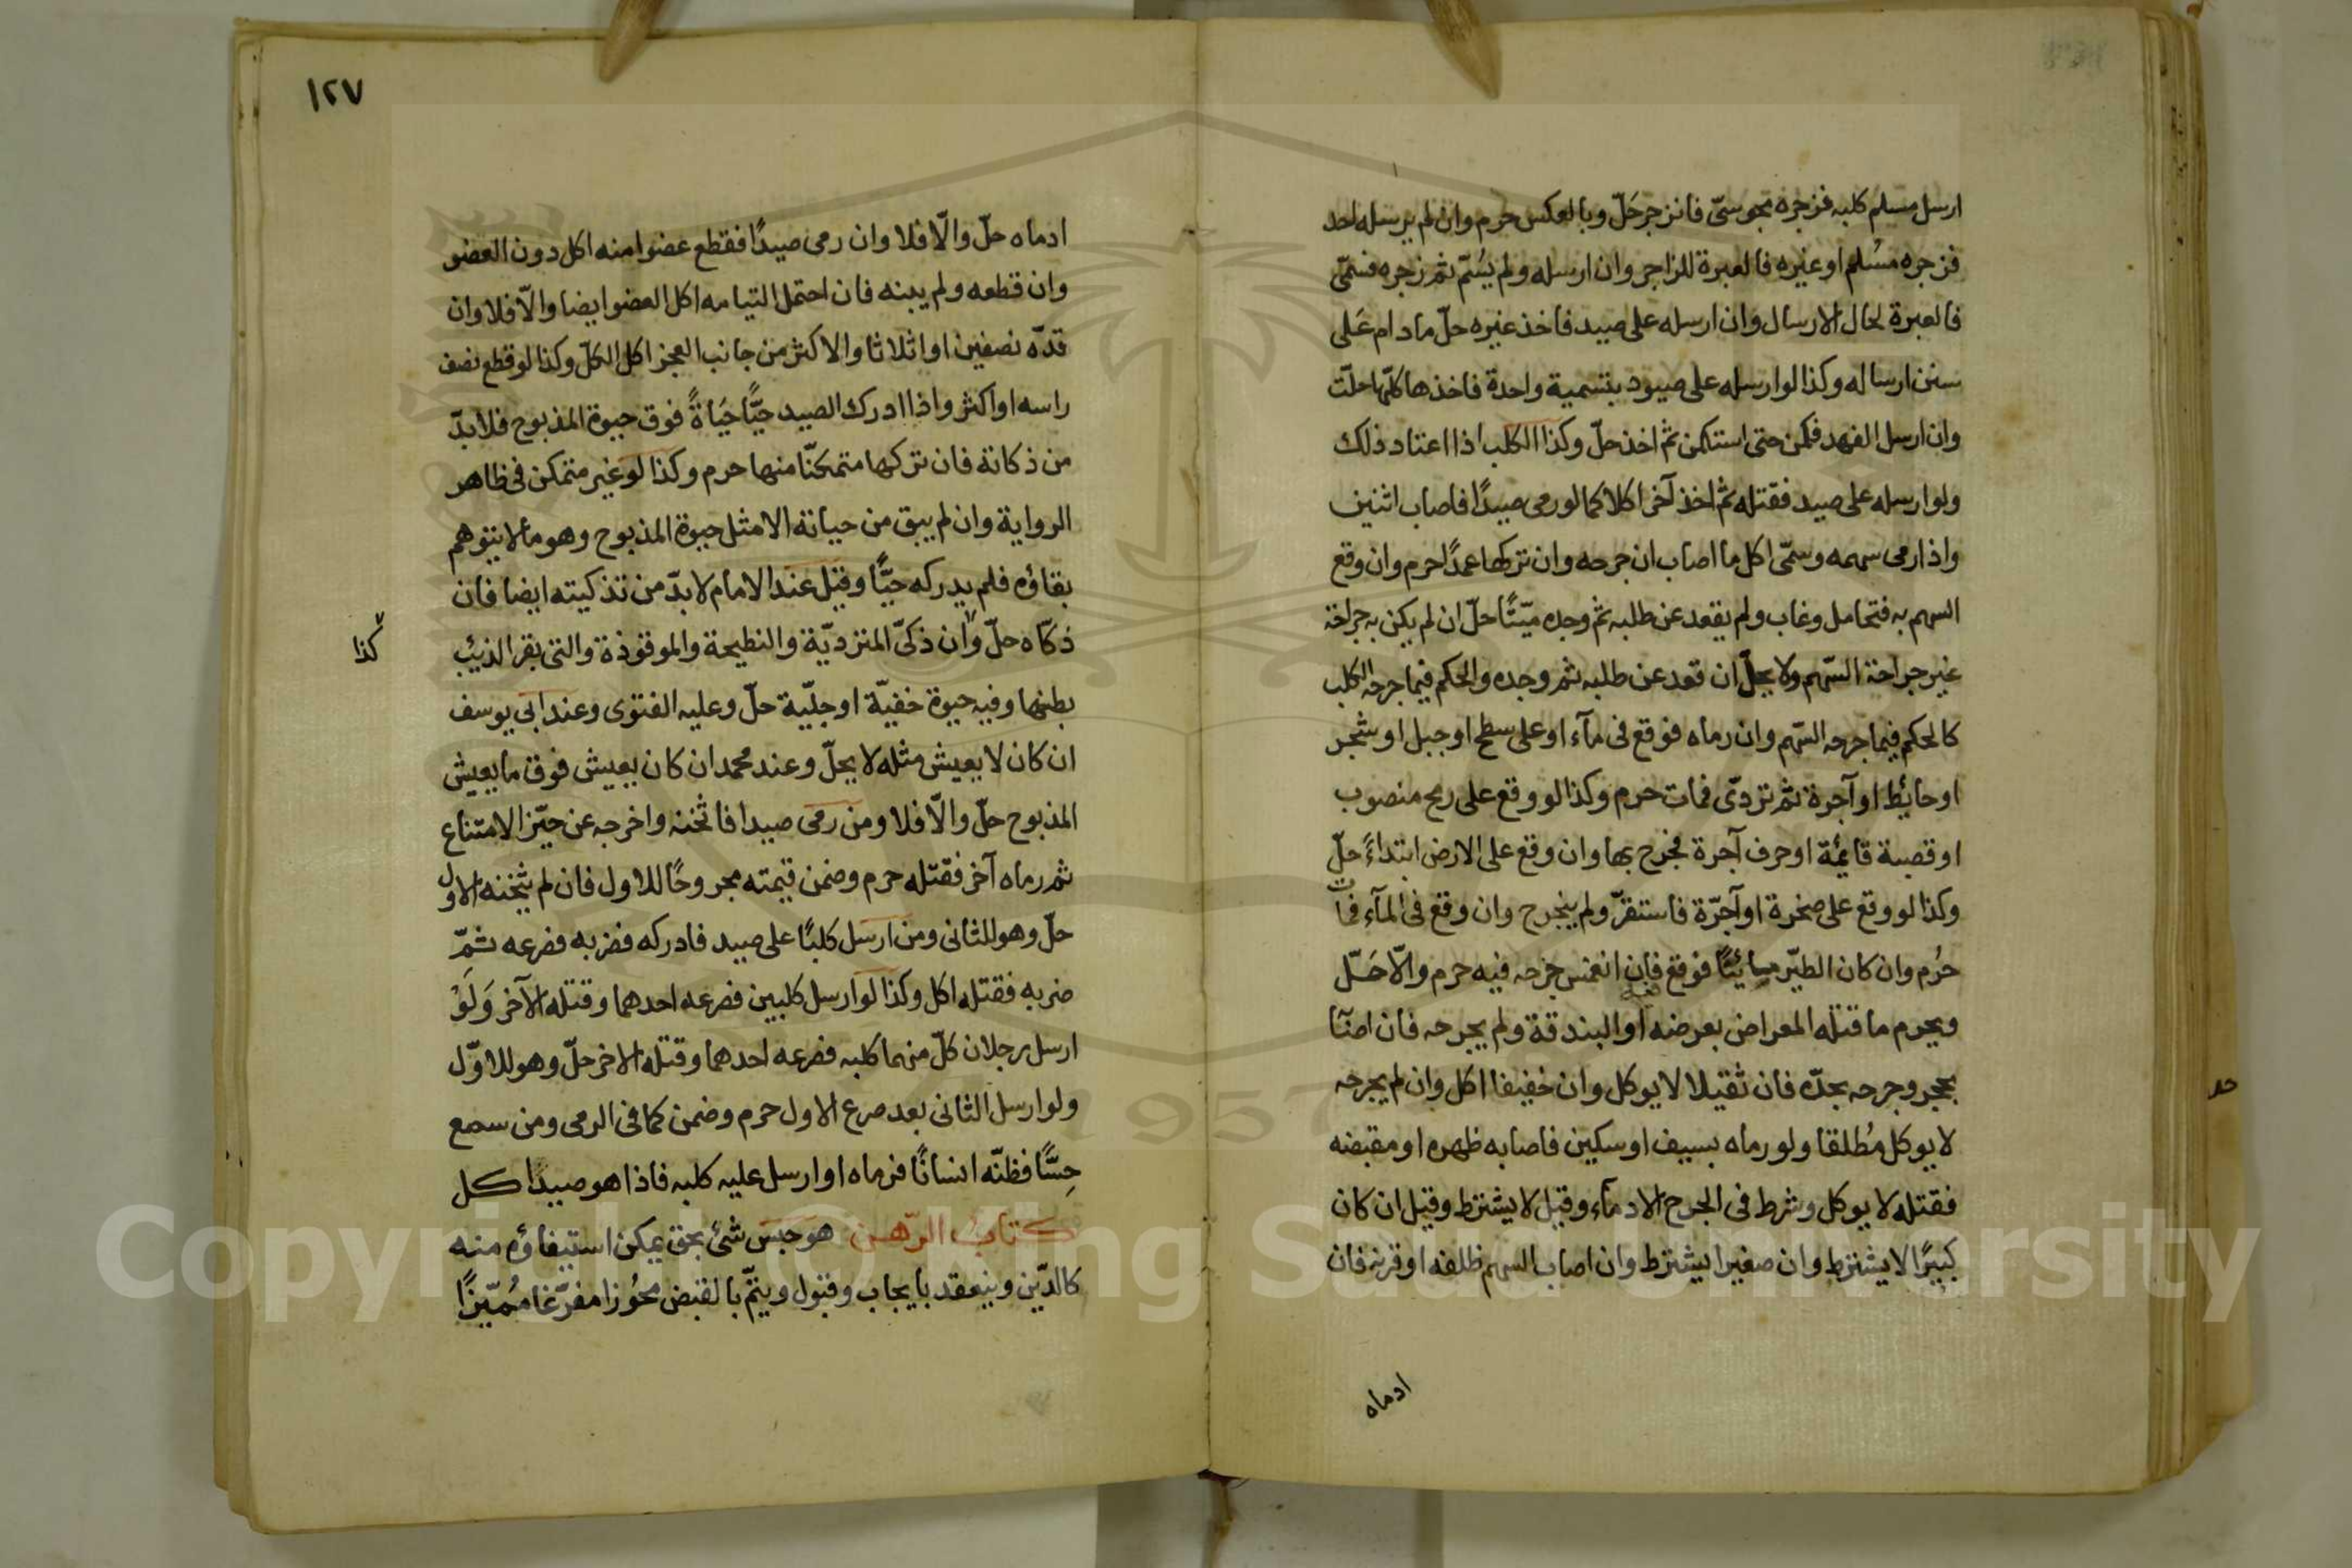 ارسل مسلم كلبه فزجره مجوسىّ فانزجر حَلّ وبالعكس حرم وان لم يرسله احد
فزجره مسُلم او غيره فالعبرة للزاجر وان ارسله ولم يُسَمّ ثم زجره فسمّى
فالعبرة لحال الارسال وان ارسله على صيد فاخذ غيره حلّ مادام عَلى
سنن ارساله وكذا لو ارسله على صيود بتسمية واحدة فاخذها كلّها حلّت
وان ارسل الفهد فكمن حتى استمكن ثم اخذ حلّ وكذا الكلب اذا اعتاد ذلك
ولو ارسله على صيد فقتله ثم اخذ آخر اكلا كما لو رمى صيدًا فاصاب اثنين
واذا رمى سهمه وسمّى اكل ما اصاب ان جرحه وان تركها عمدًا حرم وان وقع
السهم به فتحامل وغاب ولم يقعد عن طلبه ثم وجده ميّتًا حلّ ان لم يكن به جراحة
غير جراحة السّهم ولا يحلّ ان قعد عن طلبه ثم وجده والحكم فيما جرحه الكلب
كالحكم فيما جرحه السّهم وان رماه فوقع فى مآء او على سطح او جبل او شجر
او حائط او آجرة ثم تردّى فمات حرم وكذا لو وقع على رمح منصوب
او قصبة قائمة او حرف آجرة فجرح بها وان وقع على الارض ابتداءً حلّ
وكذا لو وقع على صخرة او آجرّة فاستقرّ ولم ينجرح وان وقع فى المآء فمات
حرُم وان كان الطيّر مائيًّا فوقع فان انغمس جرحه فيه حرم والّا حَلّ
ويحرم ما قتله المعراض بعرضه او البندقة ولم يجرحه فان اصابه
بحجر وجرحه بحدّه فان ثقيلا لا يوكل وان خفيفا اكل وان لم يجرحه
لا يوكل مُطلقا ولو رماه بسيف او سكين فاصابه ظهره او مقبضه
فقتله لا يوكل وشرط فى الجرح الادمآء وقيل لا يشترط وقيل ان كان
كبيرًا لا يشترط وان صغيرا يشترط وان اصاب السهم ظلفه او قرنه فان
ادماه
حد
١٢٧
ادماه حلّ والّا فلا وان رمى صيدًا فقطع عضوا منه اكل دون العضو
وان قطعه ولم يبنه فان احتمل التيامه اكل العضو ايضا والّا فلا وان
قدّه نصفين او اثلاثا والاكثر من جانب العجز اكل الكلّ وكذا لو قطع نصف
راسه او اكثر واذا ادرك الصيد حيًّا حَيَاةً فوق حيوة المذبوح فلا بدّ
من ذكاتة فان تركها متمكنّا منها حرم وكذا لو غير متمكن فى ظاهر
الرواية وان لم يبق من حياته الا مثل حيوة المذبوح وهو مالا يتوهم
بقاؤه فلم يدركه حيًّا وقيل عند الامام لا بدّ من تذكيته ايضا فان
ذكّاه حلّ وان ذكىّ المتردّية والنطيحة والموقوذة والتى بقر الذئب
كذا
بطنها وفيه حيوة خفيّة او جليّة حلّ وعليه الفتوى وعند ابى يوسف
ان كان لا يعيش مثله لا يحلّ وعند محمد ان كان يعيش فوق ما يعيش
المذبوح حلّ والّا فلا ومن رمى صيدا فاثخنه واخرجه عن حيّز الامتناع
ثم رماه آخر فقتله حرم وضمن قيمته مجروحًا للاول فان لم يثخنه الاول
حلّ وهو للثانى ومن ارسل كلبًا على صيد فادركه فضربه فصرعه ثمّ
ضربه فقتله اكل وكذا لو ارسل كلبين فصرعه احدهما وقتله الآخر وَلَوْ
ارسل رجلان كلّ منهما كلبه فصرعه احدهما وقتله الاخر حلّ وهو للاوّل
ولو ارسل الثانى بعد صرع الاول حرم وضمن كما فى الرمى ومن سمع
حِسًّا فظنّه انسانًا فرماه او ارسل عليه كلبه فاذا هو صيدًا كل
كتابُ الرّهن هو حبس شىٔ بحق يمكن استيفاؤه منه
كالدّين وينعقد بايجاب وقبول ويتمّ بالقبض محُوزا مفرّغا مُميّزًا
Copyright © King Saud University
1957